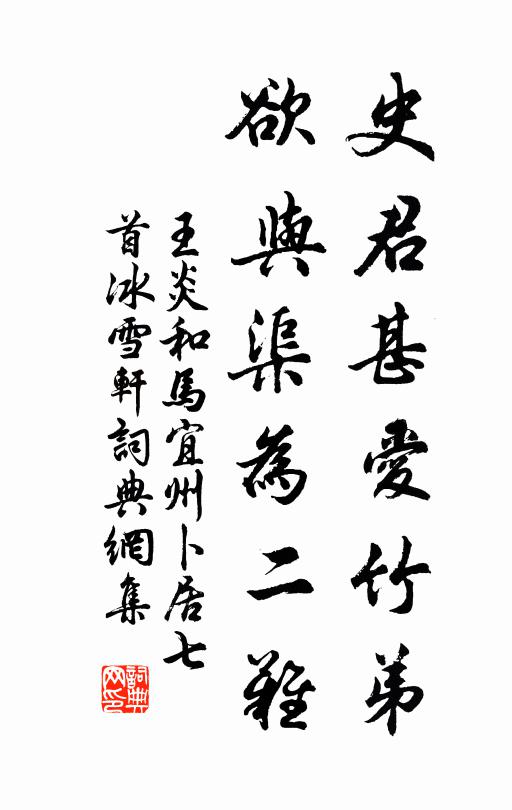 史君甚愛竹弟
欲與渠為二難
王炎和馬宜州卜居七
首冰雪軒詞典網集
詞典
网印